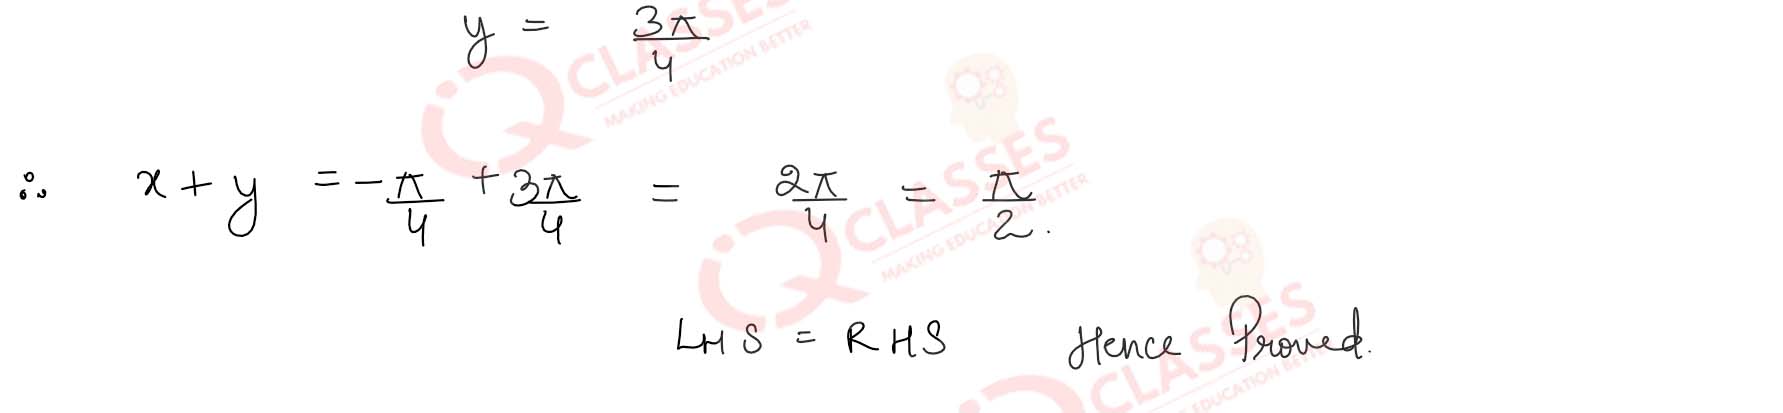 y = 3π/4
∴ x + y = -π/4 + 3π/4 = 2π/4 = π/2.
LHS = RHS Hence Proved.
IQ CLASSES
MAKING EDUCATION BETTER
IQ CLASSES
MAKING EDUCATION BETTER
CLASSES
EDUCATION BETTER